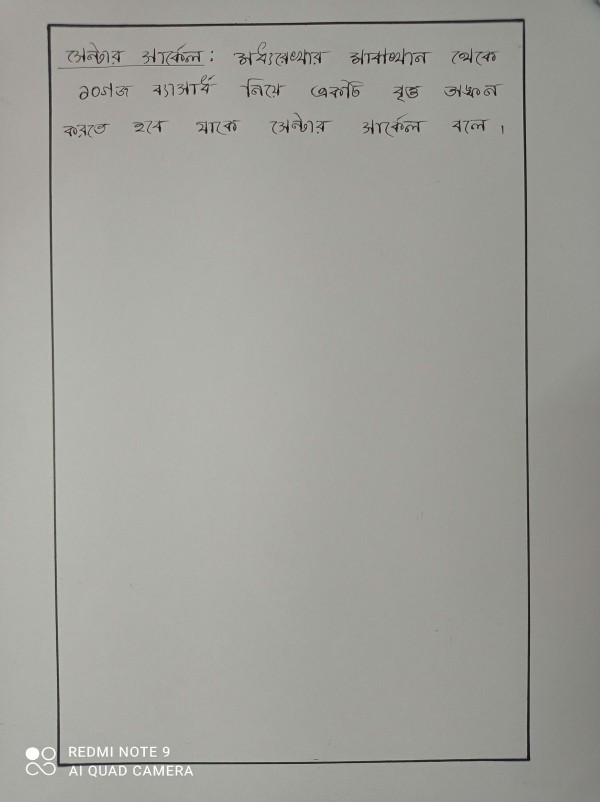 সেন্টার সার্কেল : মধ্যরেখার মাঝখান থেকে
১০গজ ব্যাসার্ধ নিয়ে একটি বৃত্ত অঙ্কন
করতে হবে যাকে সেন্টার সার্কেল বলে ।
REDMI NOTE 9
AI QUAD CAMERA